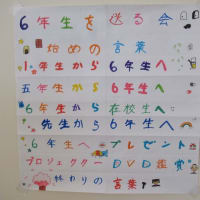 6年生を送る会
始めの言葉
1年生から6年生へ
五年生から6年生へ
6年生から在校生へ
先生から6年生へ
6年生へプレゼント
プロジェクターDVD鑑賞
終わりの言葉